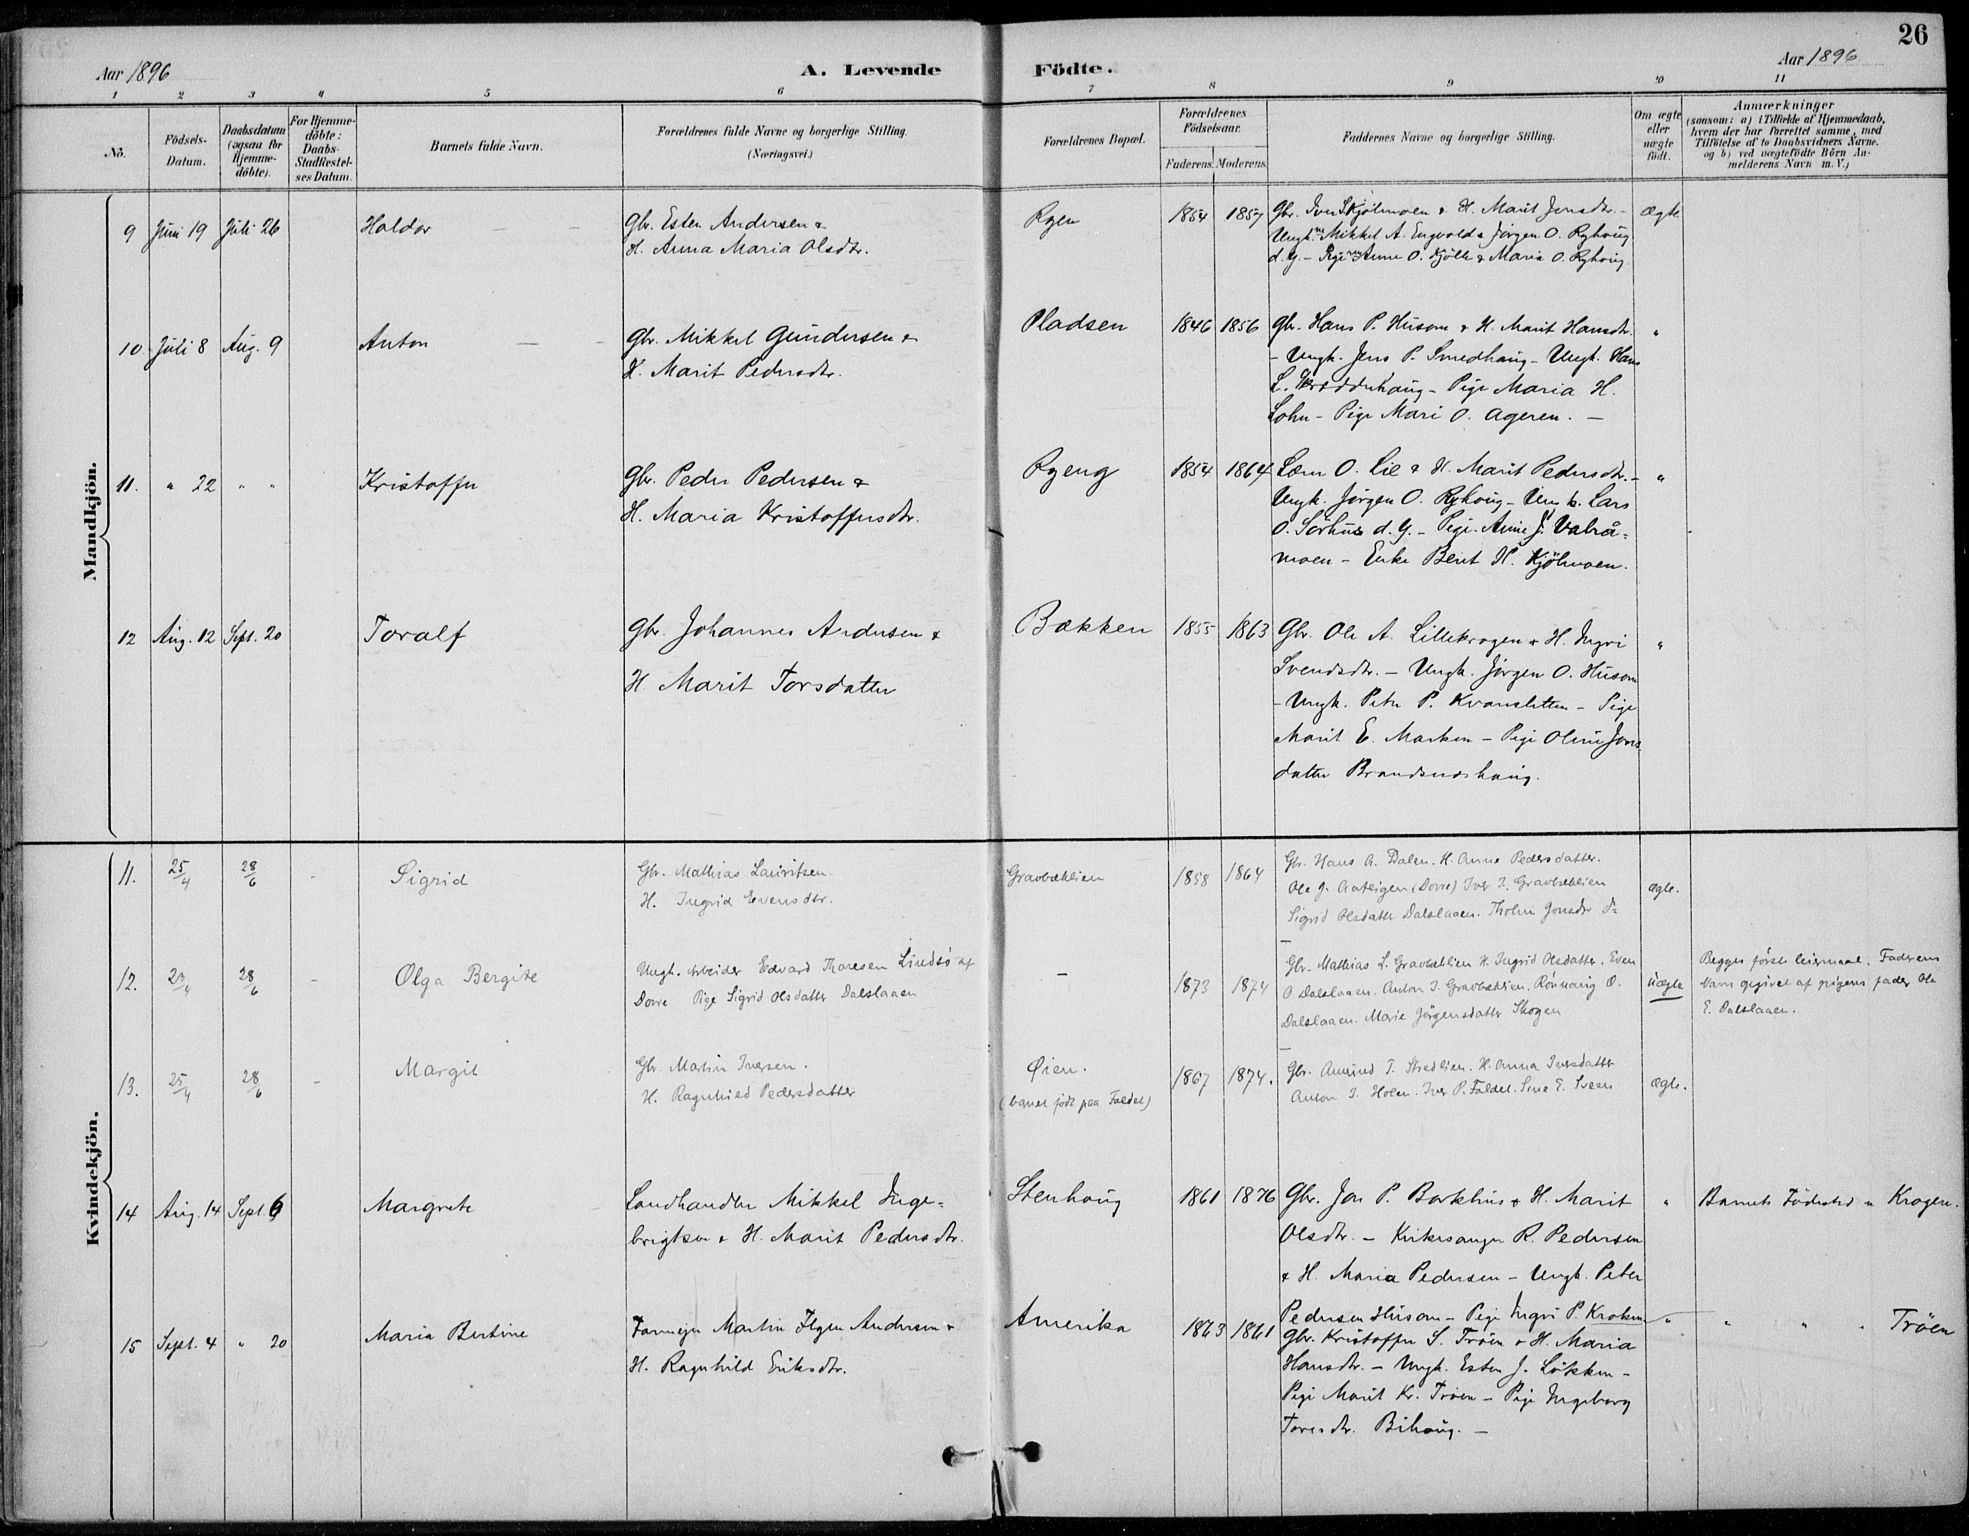 26
Aar 1896
A. Levende Födte.
Aar 1896
1 2 3 4 5 6 7 8 9 10 11
No.
Födsels-Datum.
Daabsdatum (ogsaa for Hjemme-döbte).
For Hjemme-döbte: Daabs-Stadfæstel-ses Datum.
Barnets fulde Navn.
Forældrenes fulde Navne og borgerlige Stilling. (Næringsvei.)
Forældrenes Bopæl.
Forældrenes Födselsaar.
Faderens. Moderens.
Faddernes Navne og borgerlige Stilling.
Om ægte eller uægte födt.
Anmærkninger
(saasom: a) i Tilfælde af Hjemmedaab,
hvem der har forrettet samme, med
Tilföielse af to Daabsvidners Navne.
og b) ved uægtefödte Börn An-
melderens Navn m. V.)
Mandkjön.
9 Juni 19 Juli 26 Haldor
Gbr. Esten Andersen &
H. Anna Maria Olsdtr.
Ryen 1854 1857
H. Marit Jonsdtr. -
Ungk. Mikkel A. Engvold & Jörgen O. Ryhoug
d. y. - Pige Anne O. & Maria O. Ryhoug
ægte
10 Juli 8 Aug. 9 Anton
Gbr. Mikkel Gundersen &
H. Marit Pedersdtr.
Pladsen 1846 1856
Gbr. Hans P. Husom & H. Marit Hansdtr.
- Ungk. Jens P. Smedhaug - Ungk. Hans
L. - Pige Maria H.
Lohn - Pige Mari O. Ageren. -
"
11. " 22 " " Kristoffer
Gbr. Peder Pedersen &
H. Maria Kristoffersdtr.
Ryeng 1854 1864
O. Lie & H. Marit Pedersdtr. -
Ungk. Jörgen O. Ryhoug - Ungk. Lars
O. Sörhus d. y. - Pige Anne J. Valraa-
moen - Enke Berit H. Kjölmoen.
"
12 Aug. 12 Sept. 20 Toralf
Gbr. Johannes Andersen &
H. Marit Torsdatter
Bækken 1855 1863
Gbr. Ole A. Lillekrogen & H. Ingri
Svendsdtr. - Ungk. Jörgen O. Husom
- Ungk. Peter P. Kvansletten - Pige
Marit E. Marken - Pige Oline Jons
datter Brandsneshaug.
"
Kvindekjön.
11. 25/4 28/6 - Sigrid
Gbr. Mathias Lauritsen.
H. Ingrid Evensdtr.
Gravbæklien 1858 1864
Gbr. Hans A. Dalen. H. Anne Pedersdatter.
Ole J. (Dovre) Iver I. Gravbæklien
Sigrid Olsdatter Dalslaaen. Jonsdr
ægte.
12. 28/6 - Olga Bergite
Ungk. Arbeider Edvard Thoresen Lindsö af
Dovre Pige Sigrid Olsdatter Dalslaaen
- 1873 1874
Gbr. Mathias L. Gravbæklien H. Ingrid Olsdatter. Even
O Dalslaaen. Anton I. Gravbæklien. Rönnaug O.
Dalslaaen. Marie Jörgensdatter Skogen
uægte
Begges förste leiermaal. Faderens
Navn opgivet af pigens fader Ole
E. Dalslaaen.
13. 25/4 28/6 - Margit
Gbr. Martin Iversen.
H. Ragnhild Pedersdatter
Øien.
(barnet födt paa Faldet)
1867 1874.
Gbr. Amund T. Stredlien. H. Anna Iversdatter
Anton I. Holen. Iver P. Faldet. Sine E. Sveen
ægte.
14 Aug. 14 Sept. 6 Margrete
Landhandler Mikkel Inge-
brigtsen & H. Marit Pedersdtr.
Stenhoug 1861 1876
Gbr. Jon P. Borkhus & H. Marit
Olsdtr. - Kirkesanger R. Pedersen
& H. Maria Pedersen - Ungk. Peter
Pedersen Husom - Pige Ingri P. Kroken
"
Barnets Födested er Krogen.
15 Sept. 4 " 20 Maria Bertine
Martin Andersen &
H. Ragnhild Eriksdtr.
Amerika 1863 1861
Gbr. Kristoffer S. Tröen & H. Maria
Hansdtr. - Ungk. Esten J. Lökken -
Pige Marit Kr. Tröen - Pige Ingeborg
Toresdtr. Bihaug. -
"
" " " Tröen